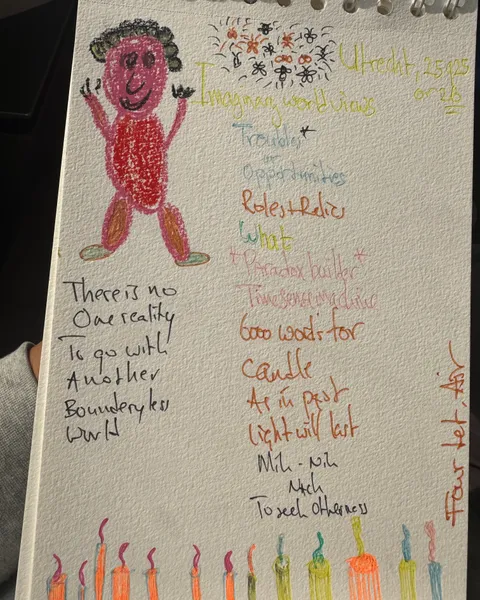 Utrecht, 25-4-25
or 26
Imaginary worldviews
Troubles*
or
Opportunities
Roles + Relics
What
*Paradox builder*
Timesense Machine
6000 words for
candle
As in past
light will last
Mih - Nih
Nich
To seek Otherness
There is no
One reality
To go with
Another
Bounderyless
World
Four Tet, Air